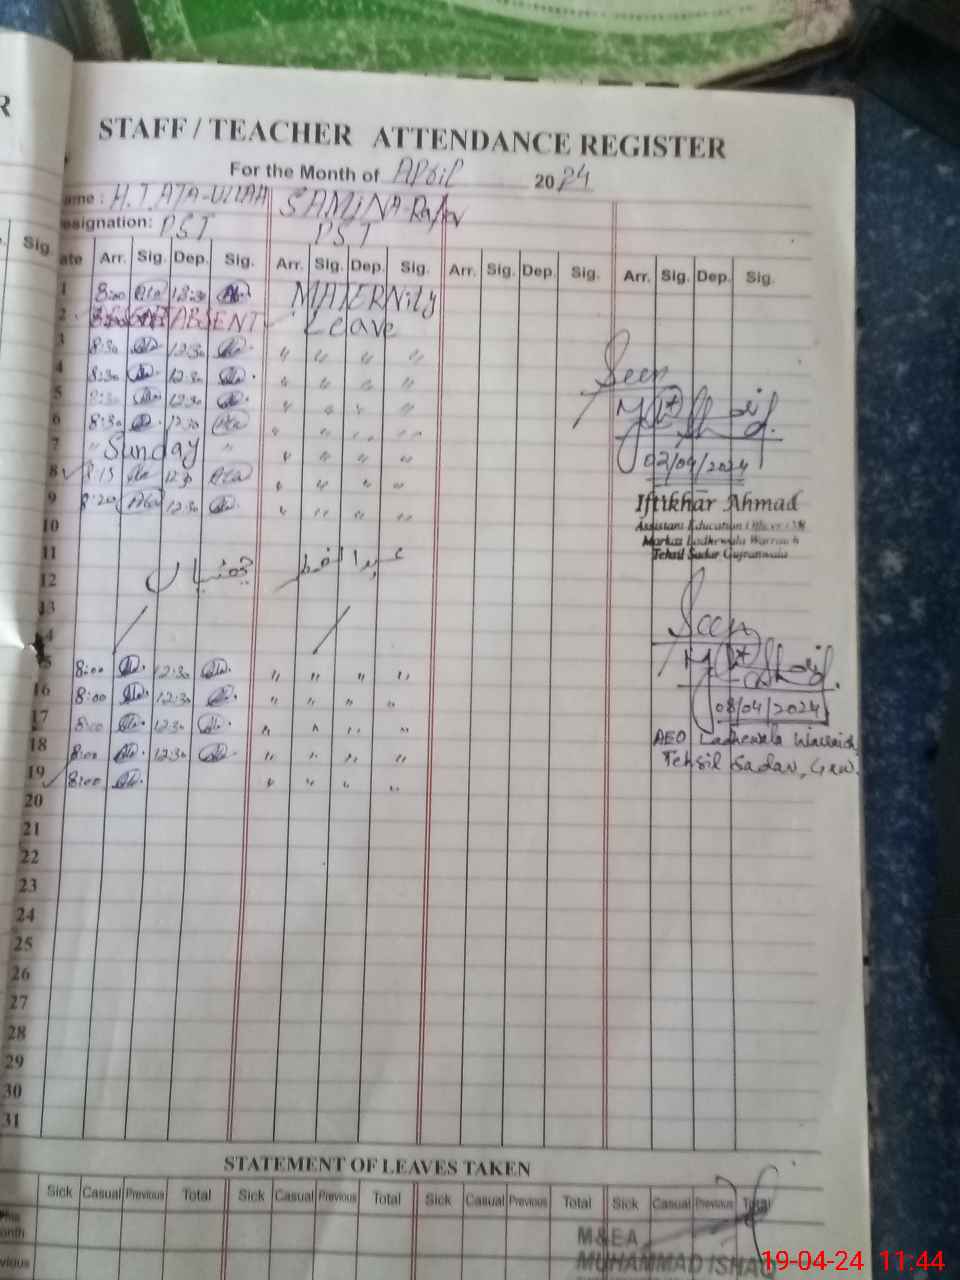 R
STAFF / TEACHER ATTENDANCE REGISTER
For the Month of April 2024
ame : H.T ATA-ULLAH SAMINA-
esignation: PST PST
Sig. ate Arr. Sig. Dep. Sig. Arr. Sig. Dep. Sig. Arr. Sig. Dep. Sig. Arr. Sig. Dep. Sig.
1 8:00 Ata 12:30 Ata MATERNity
2 ABSENT Leave
3 8:30 12:30 " " " "
4 8:30 12:30 " " " "
5 8:30 12:30 " " " "
6 8:30 12:30 Ata " " " "
7 " Sunday " " " " "
8 8:15 Ata Ata " " " "
9 8:20 Ata 12:30 " " " "
10
11
12 عید الفطر چھٹیاں
13
4
5 8:00 12:30 " " " "
16 8:00 12:30 " " " "
17 8:00 12:30 " " " "
18 8:00 12:30 " " " "
19 8:00 " " " "
20
21
22
23
24
25
26
27
28
29
30
31
Seen
02/04/2024
Iftikhar Ahmad
Assistant Education Officer
Markaz Ladhewala Warraich
Tehsil Sadar Gujranwala
Seen
08/04/2024
AEO Ladhewala Warraich,
Tehsil Sadar, Grw.
STATEMENT OF LEAVES TAKEN
Sick Casual Previous Total Sick Casual Previous Total Sick Casual Previous Total Sick Casual Previous Total
This
onth
vious
M&EA
MUHAMMAD ISHAQ
19-04-24 11:44